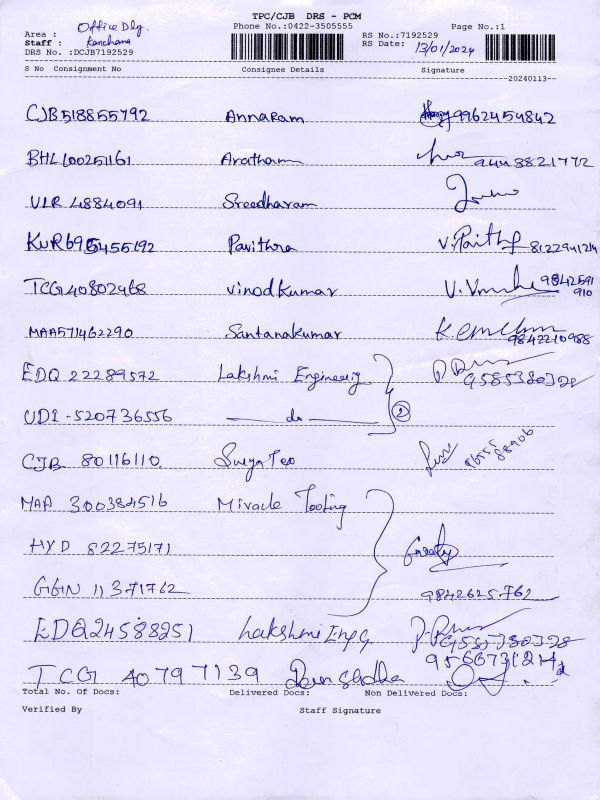 TPC/CJB DRS - PCM
Office Dly.
Phone No.:0422-3505555
Page No.:1
Area :
Staff : Kanchana
RS No.:7192529
RS Date: 13/01/2024
DRS No. :DCJB7192529
S No Consignment No Consignee Details Signature
20240113
CJB518855792 Annaram 9962454842
BHL100251161 Aratham 9443821772
VLR 4884091 Sreedharam
KUR695455192 Pavithra V. 8122941214
TCG40802468 Vinodkumar 9842591910
MAA571462290 Santanakumar 9842210988
EDQ 22289572 Lakshmi Engineerig 9585380328
UDI-520736556 do 2
CJB 80116110 Surya Teo 9655588906
MAA 300384516 Miracle Tooling
HYD 82275171
GGN 11371762 9842625762
EDQ24588251 Lakshmi Engg 9585380328
TCG 40797139
Total No. Of Docs: Delivered Docs: Non Delivered Docs:
Verified By Staff Signature